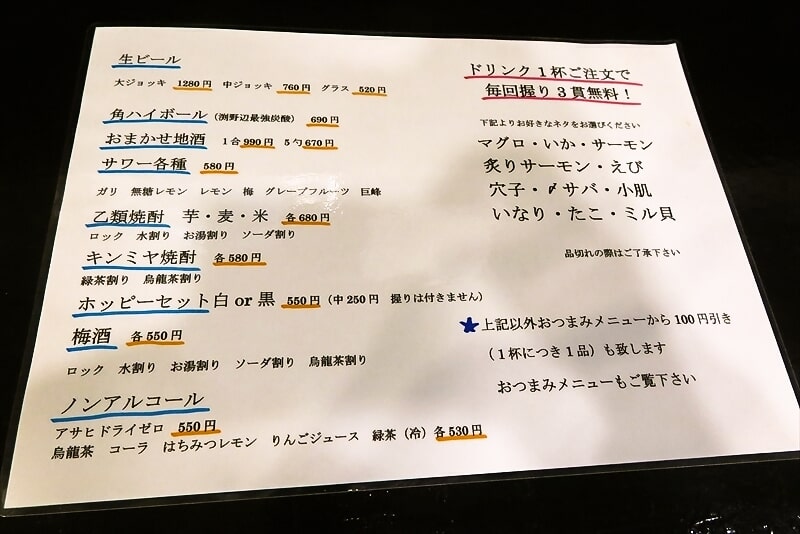 生ビール
大ジョッキ 1280円 中ジョッキ 760円 グラス 520円
角ハイボール（渕野辺最強炭酸） 690円
おまかせ地酒 1合990円 5勺670円
サワー各種 580円
ガリ 無糖レモン レモン 梅 グレープフルーツ 巨峰
乙類焼酎 芋・麦・米 各680円
ロック 水割り お湯割り ソーダ割り
キンミヤ焼酎 各580円
緑茶割り 烏龍茶割り
ホッピーセット白 or 黒 550円（中250円 握りは付きません）
梅酒 各550円
ロック 水割り お湯割り ソーダ割り 烏龍茶割り
ノンアルコール
アサヒドライゼロ 550円
烏龍茶 コーラ はちみつレモン りんごジュース 緑茶（冷）各530円
ドリンク1杯ご注文で
毎回握り3貫無料！
下記よりお好きなネタをお選びください
マグロ・いか・サーモン
炙りサーモン・えび
穴子・〆サバ・小肌
いなり・たこ・ミル貝
品切れの際はご了承下さい
★上記以外おつまみメニューから100円引き
（1杯につき1品）も致します
おつまみメニューもご覧下さい